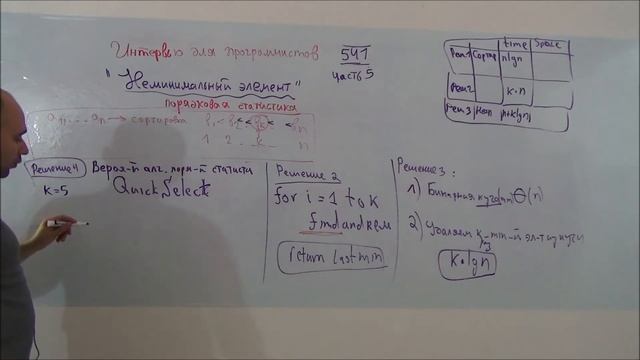 Интервью для программистов 541
часть 5
"Неминимальный элемент"
порядковая статистика
a₁, ... aₙ → сортировка b₁ < b₂ < bₖ < bₙ
1 2 .. k .. n
time Space
Реш1 Сортир n lgn
Реш2 k·n
Реш3 n+k lgn
Решение 4 Вероя-й алг. поря-й статисти
k=5 QuickSelect
Решение 2
for i = 1 to k
find and rem
return last min
Решение 3:
1) Бинарная куча (n) Θ(n)
2) Удаляем k min-й эл-т из кучи
k·lgn